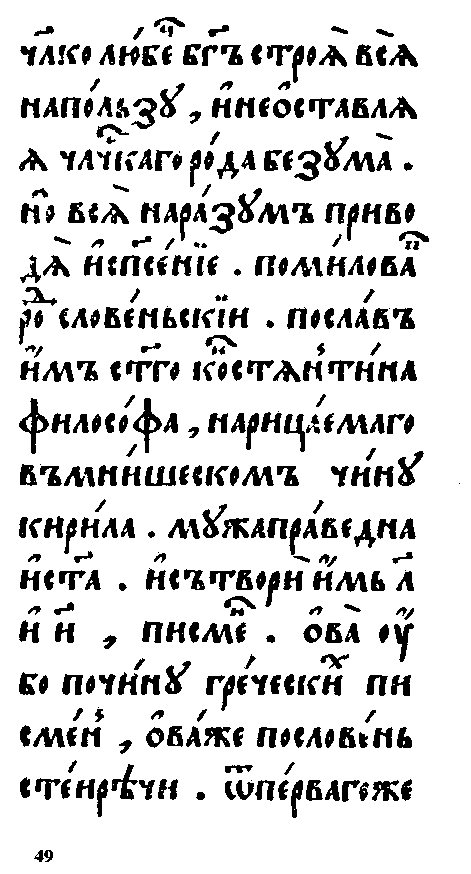 чл҃ко любе҇ бг҃ъ строѧ̀ всѧ̀
напо́льзꙋ , и҆неѡ҆ставлѧ
ѧ члч҇каго ро́да безꙋма̀ .
но҆ всѧ̀ нара́зꙋмъ приво
дѧ̀ и҆сп҃се́нїе . поми́лова
ро҇ слове́ньскїи . посла́въ
и҆́мъ ст҃го ко҆стѧнти́на
филосо́фа , нарица́емаго
въмни́шескомъ чи́нꙋ
кири́ла . мꙋ́жапра́ведна
и҆ст҃а . и҆сътвори̏ и҆́мь л҃
и҆ и҃ , писме҇ . ѻ҆ва̀ оу҆
бо почи́нꙋ гре́ческиⷯ пи
сме́н , ѻ҆ва́же послове́нь
сте́нрѣ́чи . ѿпе́рвагоже
49